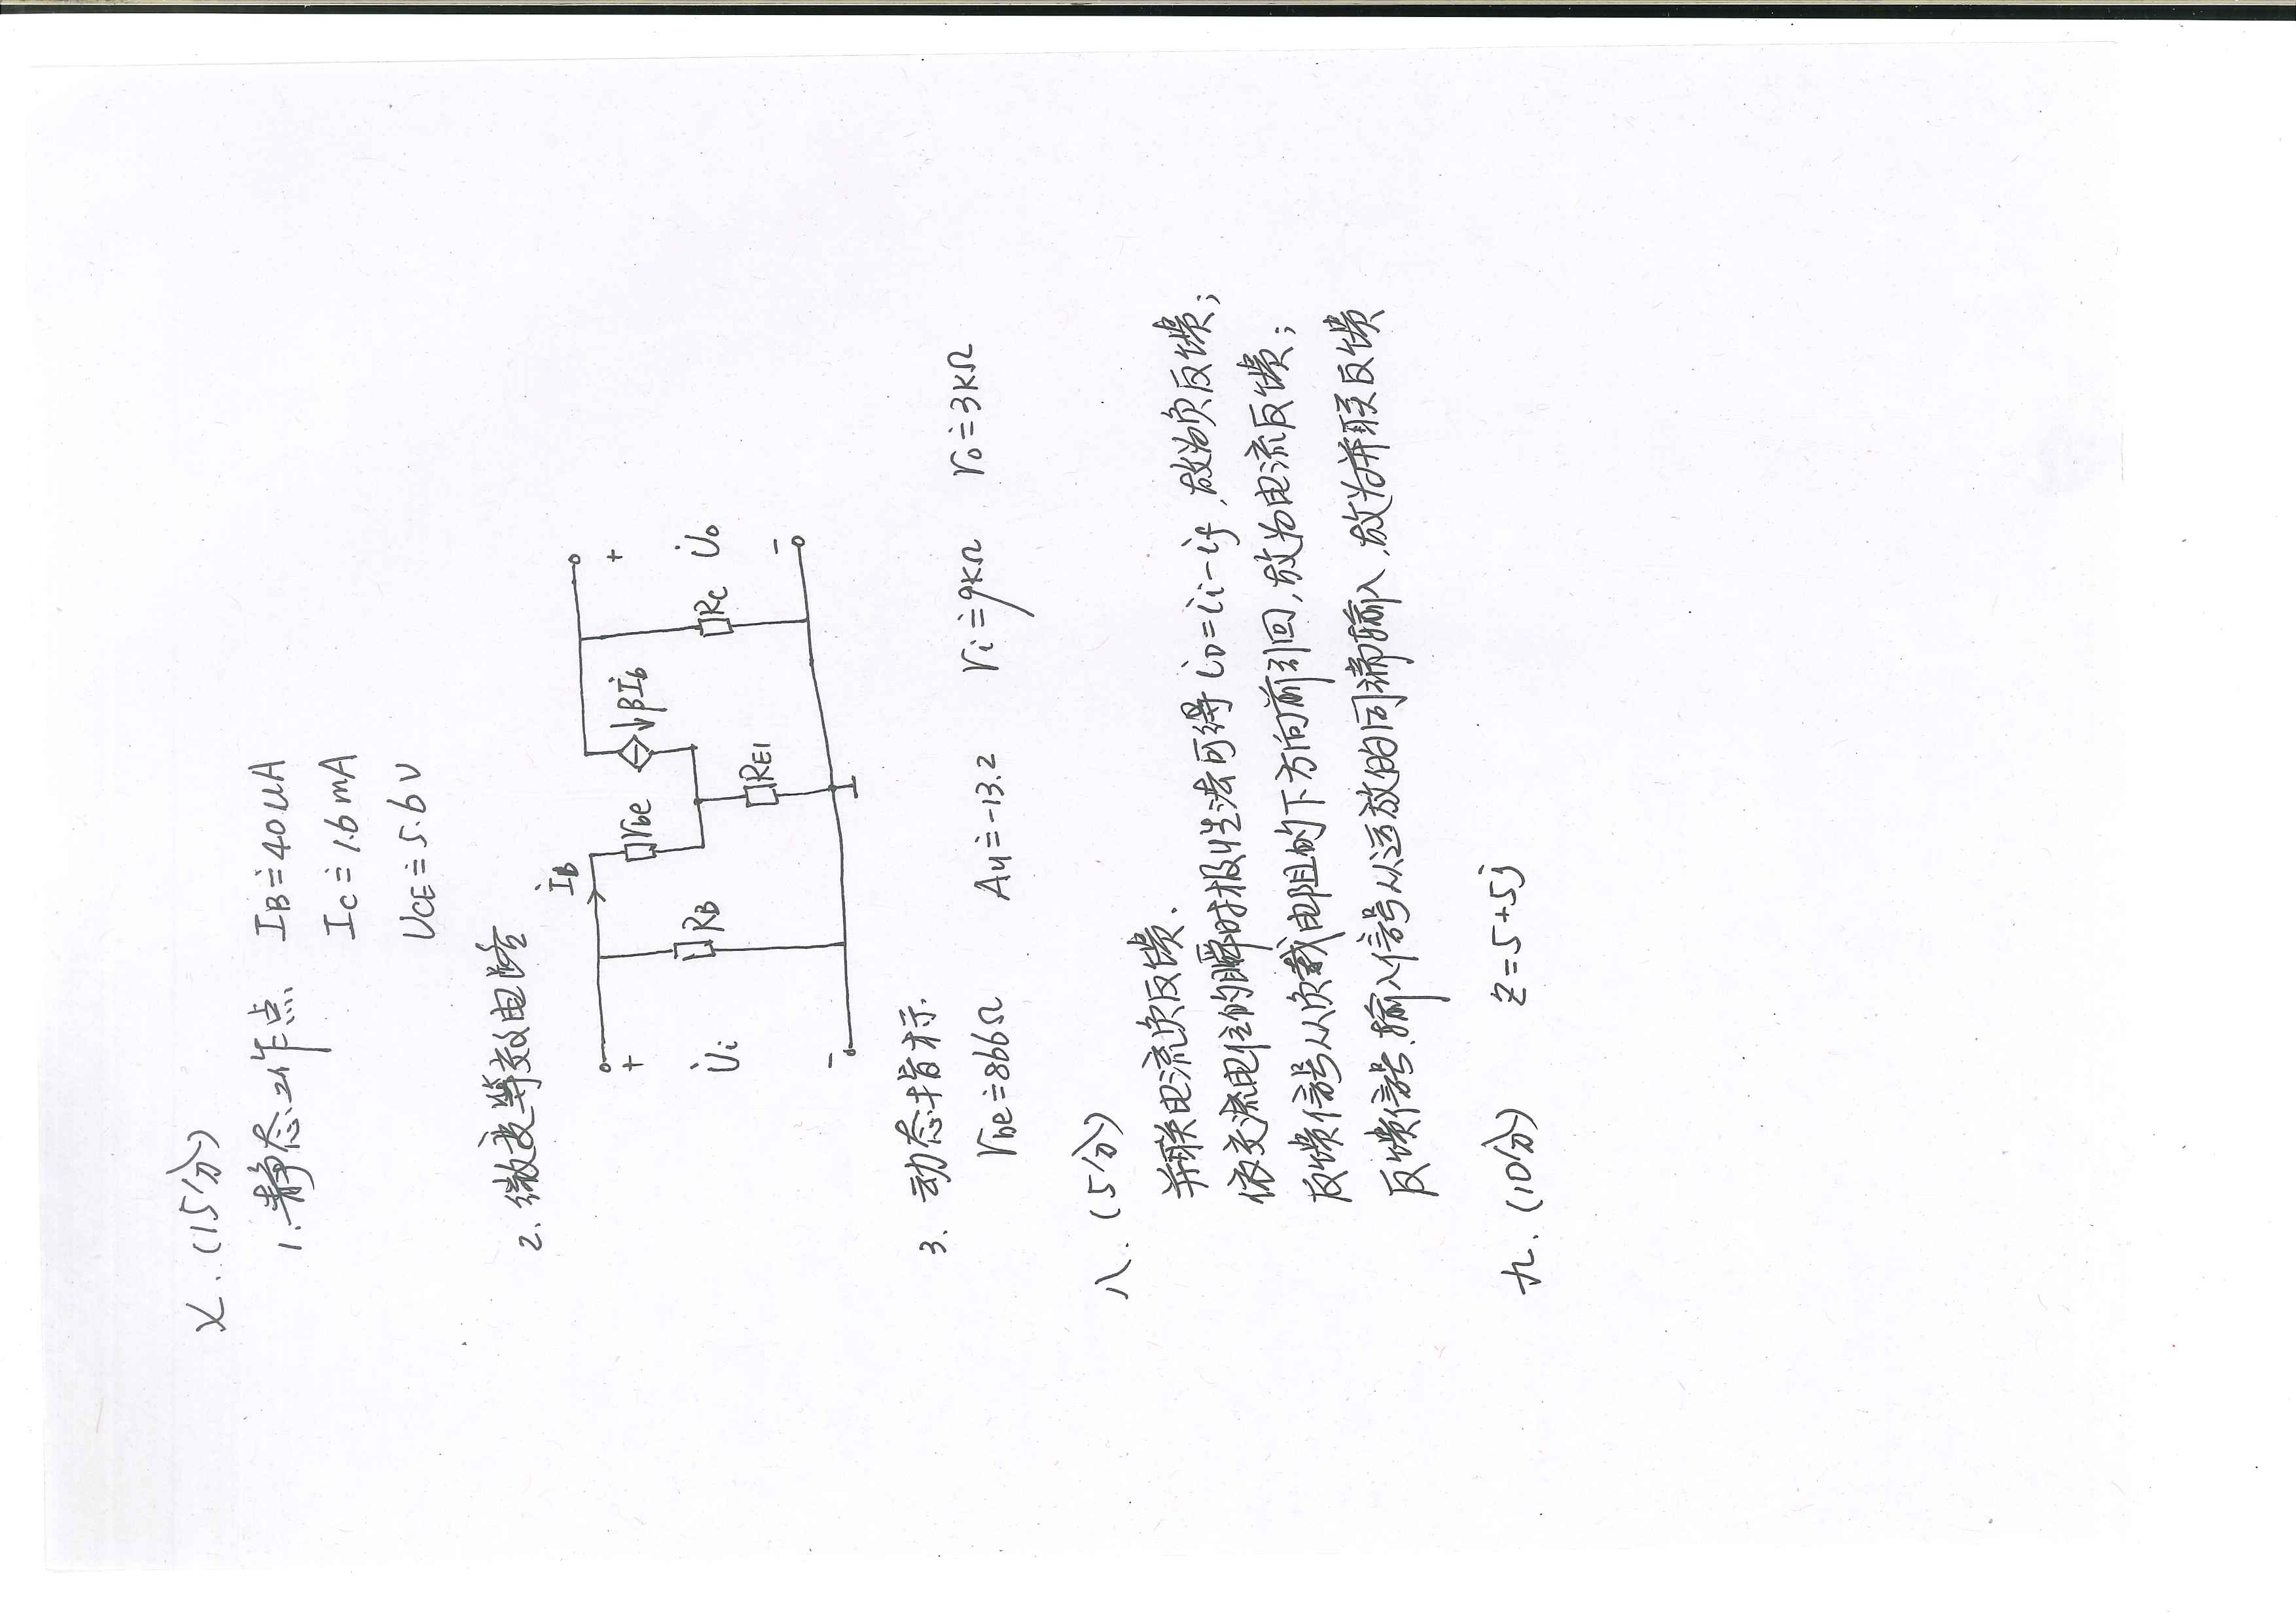 七.(15分)
1.静态工作点 IB≐40μA
Ic≐1.6mA
UCE≐5.6V
2.微变等效电路
İB
+ rbe ↓βİb +
U̇i RB RE1 RC U̇o
- -
3.动态指标.
rbe≐866Ω Au≐-13.2 ri≐9KΩ ro≐3KΩ
八.(5分)
并联电流负反馈.
依交流电位的瞬时极性法可得iD=ii-if,故为负反馈;
反馈信号从负载电阻的下方向前引回,故为电流反馈;
反馈信号、输入信号从运放的同端输入,故为并联反馈
九.(10分) Z=5+5j